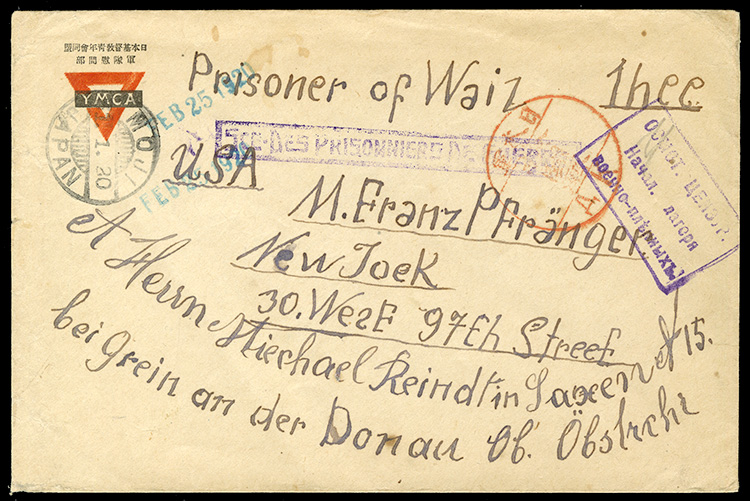 日本基督教青年會同盟
軍隊慰問部
YMCA
MOJI
1. 20
JAPAN
FEB 25 1920
FEB 25 1920
Prisoner of Waiz thee
SCE DES PRISONNIERS DE GUERRE
USA
M. Franz Pfränger
New Joek
30. WesE 97Eh Street
A Herrn Miechael Reindt in Saxen № 15.
bei Grein an der Donau Ob. Öbstrehr
ЦЕНЗУР.
Начал. лагеря
военно-плѣнныхъ